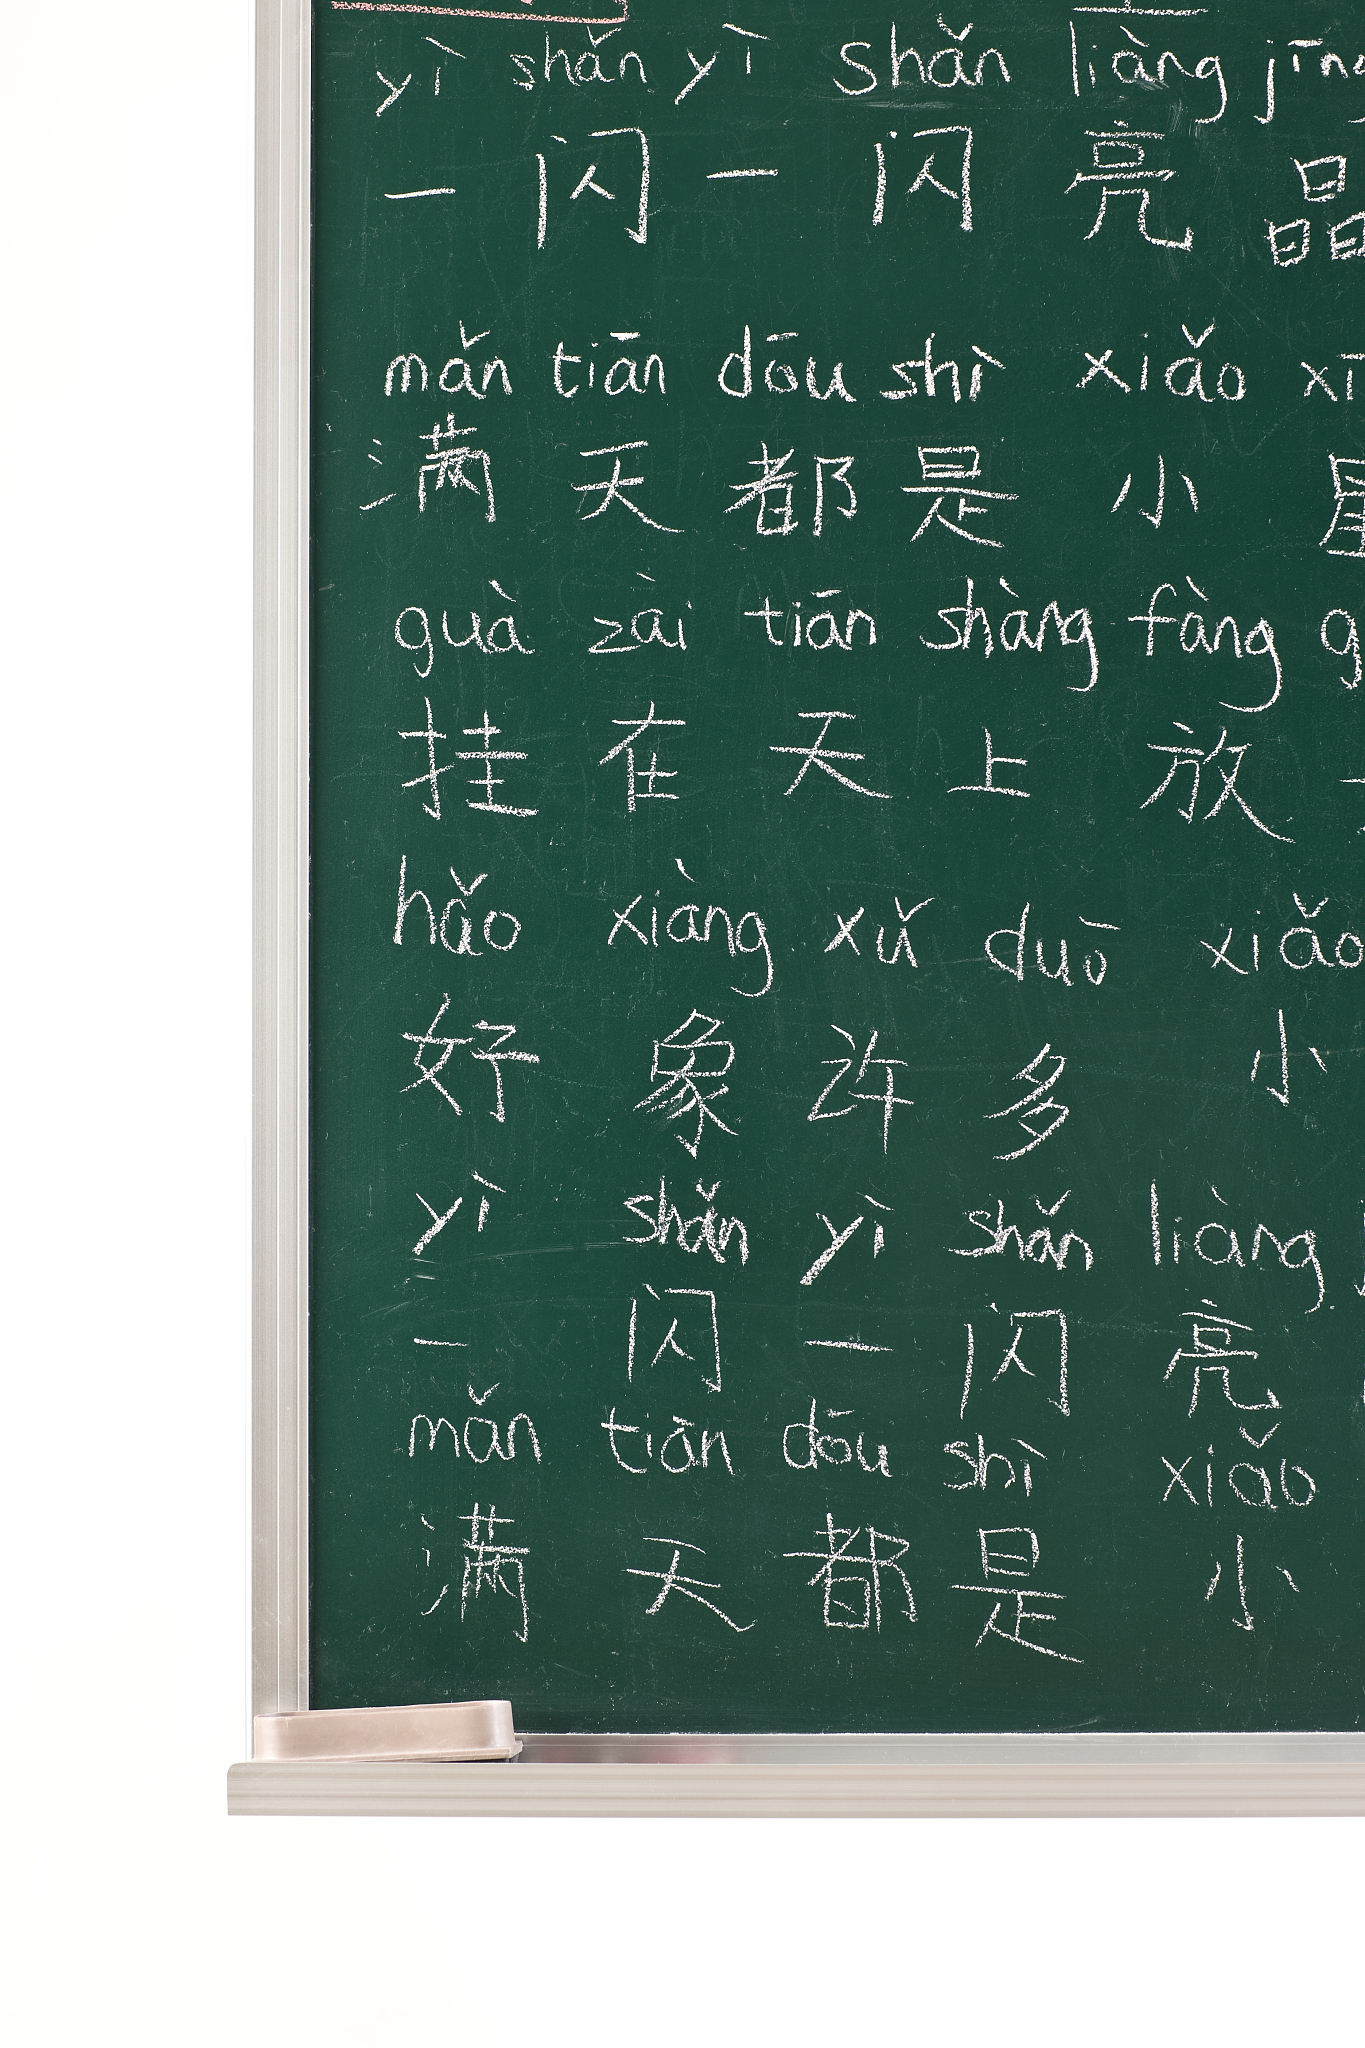 yì shǎn yì shǎn liàng jīng
一闪一闪亮晶
mǎn tiān dōu shì xiǎo xī
满天都是小
guà zài tiān shàng fàng g
挂在天上放
hǎo xiàng xǔ duō xiǎo
好象许多小
yì shǎn yì shǎn liàng
一闪一闪亮
mǎn tiān dōu shì xiǎo
满天都是小